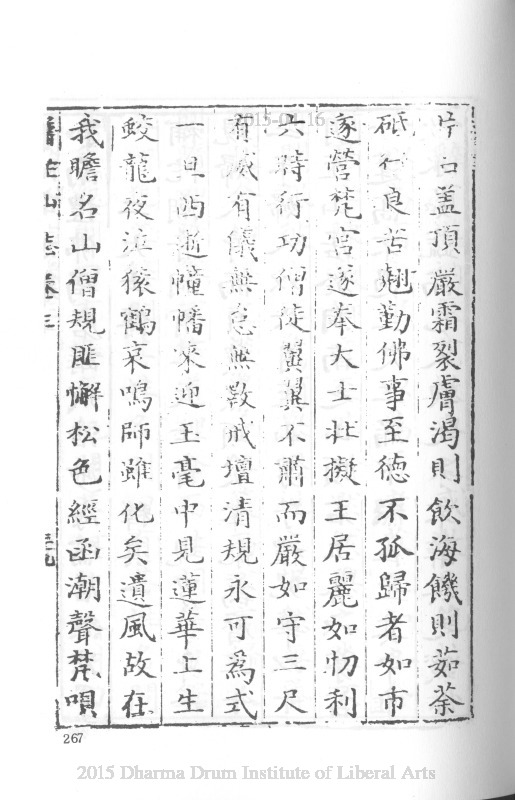 片石盖頂嚴霜裂膚渴則飲海饑則茹荼
砥行良苦翹勤佛事至德不孤歸者如市
遂營梵宮遂奉大士壯擬王居麗如忉利
六時行功僧徒翼翼不肅而嚴如守三尺
有威有儀無怠無斁戒壇清規永可為式
一旦西逝幢幡來迎玉毫中見蓮華上生
鮫龍夜泣猿鶴哀鳴師雖化矣遺風故在
我瞻名山僧規匪懈松色經函潮聲梵唄
山志卷三
267
2015-04-16
2015 Dharma Drum Institute of Liberal Arts